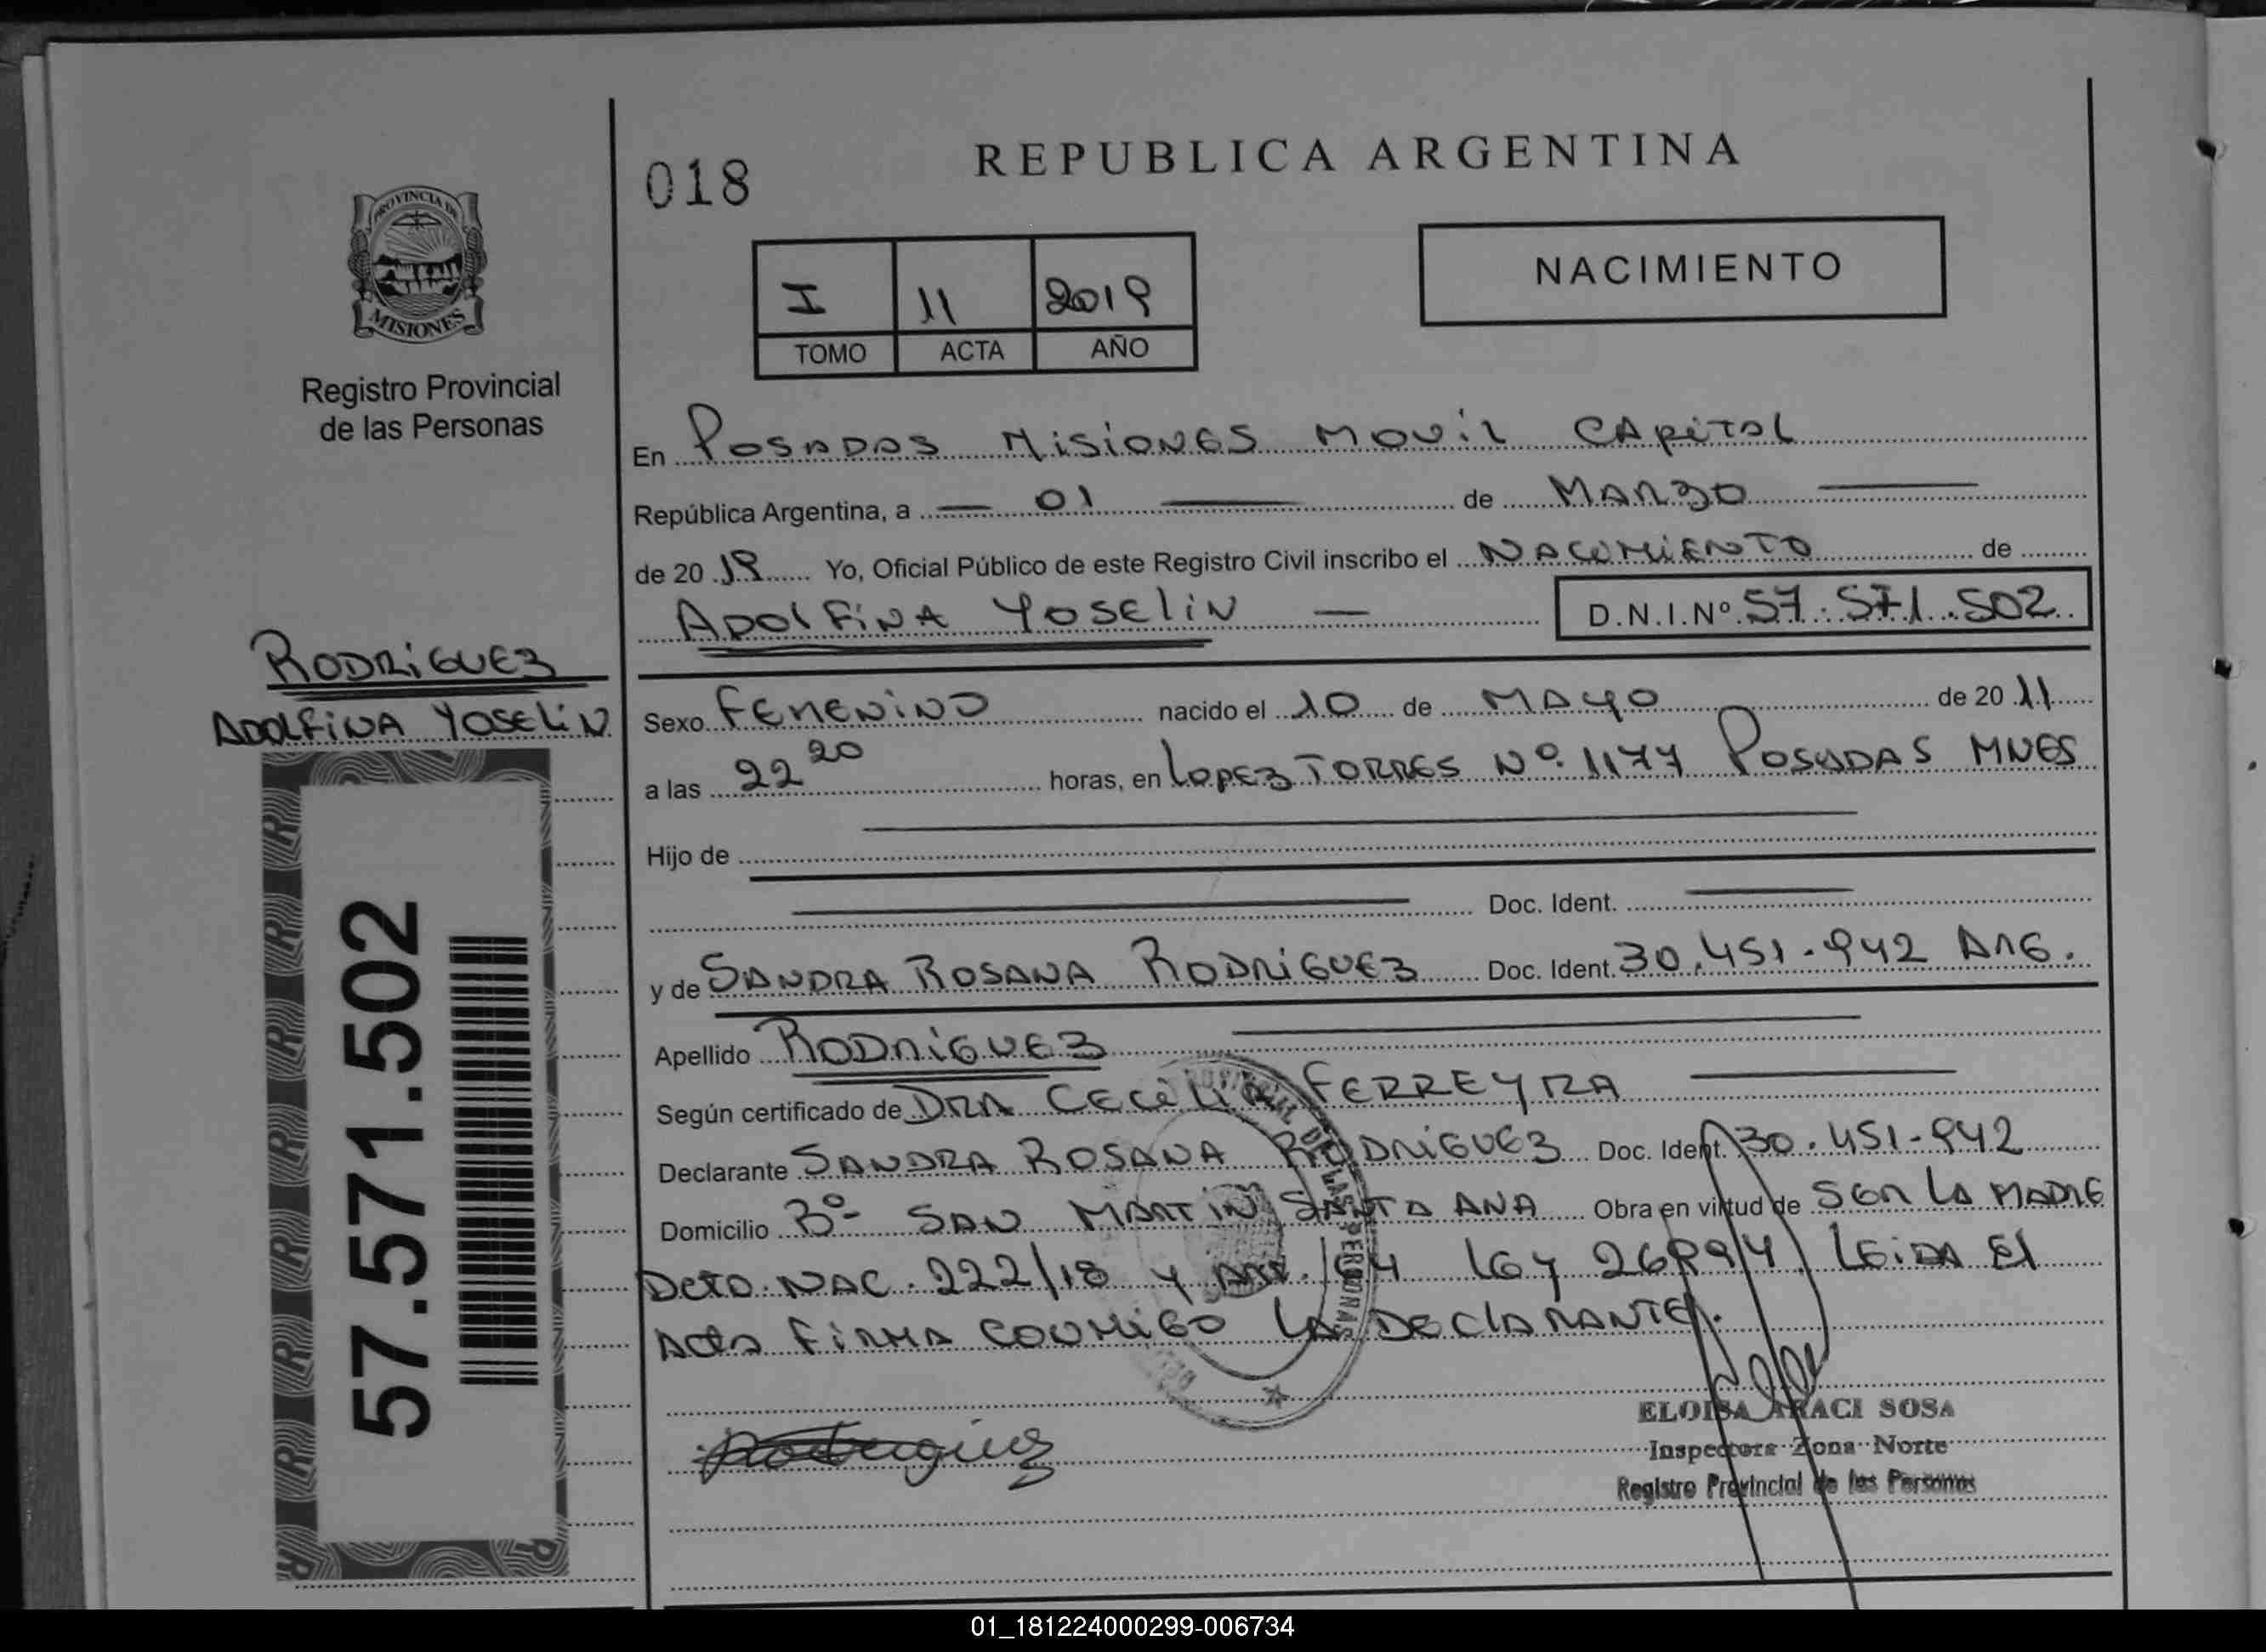 PROVINCIA DE
MISIONES
Registro Provincial
de las Personas
RODRIGUEZ
ADOLFINA YOSELIN
57.571.502
018
REPUBLICA ARGENTINA
NACIMIENTO
I 11 2019
TOMO ACTA AÑO
En POSADAS MISIONES MOVIL CAPITAL
República Argentina, a — 01 — de MARZO —
de 2019 Yo, Oficial Público de este Registro Civil inscribo el NACIMIENTO de
ADOLFINA YOSELIN — D.N.I.Nº 57.571.502
Sexo FEMENINO nacido el 10 de MAYO de 2011
a las 22 20 horas, en LOPEZ TORRES Nº 1177 POSADAS MNES
Hijo de
Doc. Ident. —
y de SANDRA ROSANA RODRIGUEZ Doc. Ident. 30.451.942 ARG.
Apellido RODRIGUEZ —
Según certificado de DRA CECILIA FERREYRA —
Declarante SANDRA ROSANA RODRIGUEZ Doc. Ident. 30.451.942
Domicilio Bº SAN MARTIN SANTA ANA Obra en virtud de SER LA MADRE
DCTO. NAC. 222/18 Y ART. 164 LEY 26994 LEIDA El
ACTA FIRMA CONMIGO LA DECLARANTE.
DE LAS PERSONAS
Rodriguez
ELOISA ARACI SOSA
Inspectora Zona Norte
Registro Provincial de las Personas
01_181224000299-006734